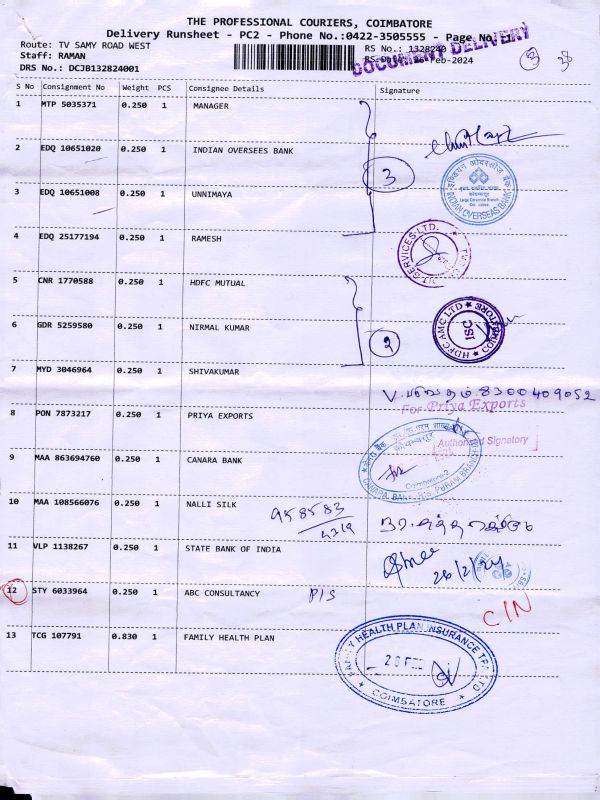 THE PROFESSIONAL COURIERS, COIMBATORE
Delivery Runsheet - PC2 - Phone No.:0422-3505555 - Page No.:1
Route: TV SAMY ROAD WEST
RS No.: 1328240
Staff: RAMAN
RS Date: 26-Feb-2024
DRS No.: DCJB132824001
DOCUMENT DELIVERY
S No Consignment No Weight PCS Consignee Details Signature
1 MTP 5035371 0.250 1 MANAGER
2 EDQ 10651020 0.250 1 INDIAN OVERSEES BANK
INDIAN OVERSEAS BANK
3 EDQ 10651008 0.250 1 UNNIMAYA
3
4 EDQ 25177194 0.250 1 RAMESH
SERVICES LTD.
5 CNR 1770588 0.250 1 HDFC MUTUAL
6 GDR 5259580 0.250 1 NIRMAL KUMAR
2
HDFC AMC LTD
ISC
7 MYD 3046964 0.250 1 SHIVAKUMAR
8300409052
8 PON 7873217 0.250 1 PRIYA EXPORTS
For Priya Exports
Authorised Signatory
9 MAA 863694760 0.250 1 CANARA BANK
Coimbatore-2
CANARA BANK, R.S. PURAM BRANCH
10 MAA 108566076 0.250 1 NALLI SILK
958583
4319
11 VLP 1138267 0.250 1 STATE BANK OF INDIA
26/2/24
12 STY 6033964 0.250 1 ABC CONSULTANCY
P/S
C/N
13 TCG 107791 0.830 1 FAMILY HEALTH PLAN
FAMILY HEALTH PLAN INSURANCE TPA LTD
COIMBATORE